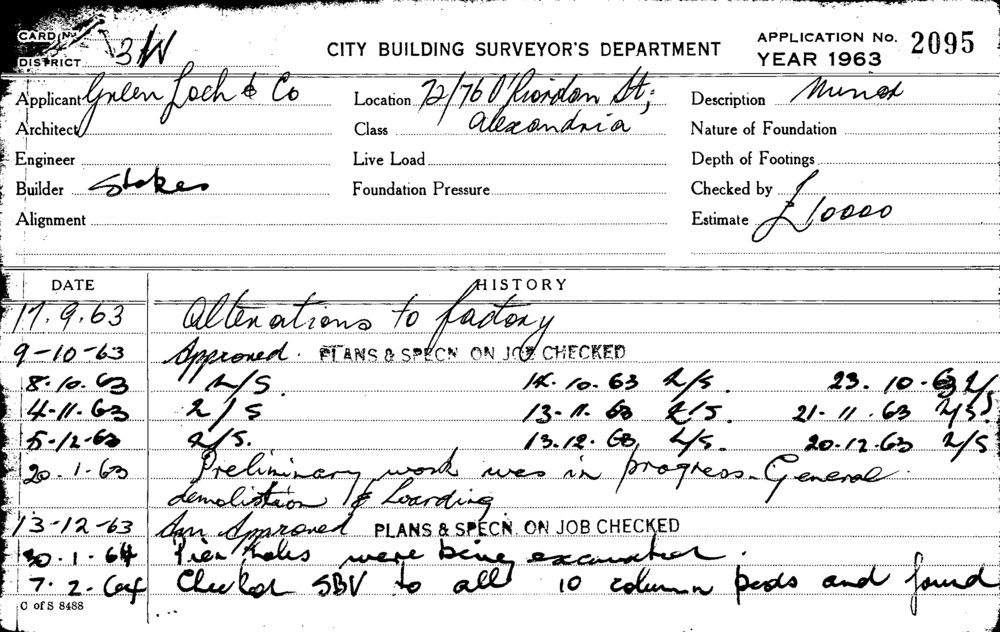 CARD No.
DISTRICT 3W
CITY BUILDING SURVEYOR'S DEPARTMENT
APPLICATION No. 2095
YEAR 1963
Applicant Green Loch & Co
Location 72/76 O'Riordan St;
Description
Architect
Class Alexandria
Nature of Foundation
Engineer
Live Load
Depth of Footings
Builder Stokes
Foundation Pressure
Checked by
Alignment
Estimate £10000
DATE HISTORY
17.9.63 Alterations to factory
9-10-63 Approved. PLANS & SPECN ON JOB CHECKED
8.10.63 2/S. 14.10.63 2/S. 23.10.63 2/
4-11-63 2/S 13-11-63 2/S. 21-11.63 2/S
5-12-63 2/S. 13.12.63, 2/S. 20-12-63 2/S
20.1.63 Preliminary work was in progress. General
demolition & hoarding
13-12-63 Am Approved PLANS & SPECN. ON JOB CHECKED
30.1.64 Pier holes were being excavated.
7.2.64 Checked SBV to all 10 column pads and found
C of S 8488